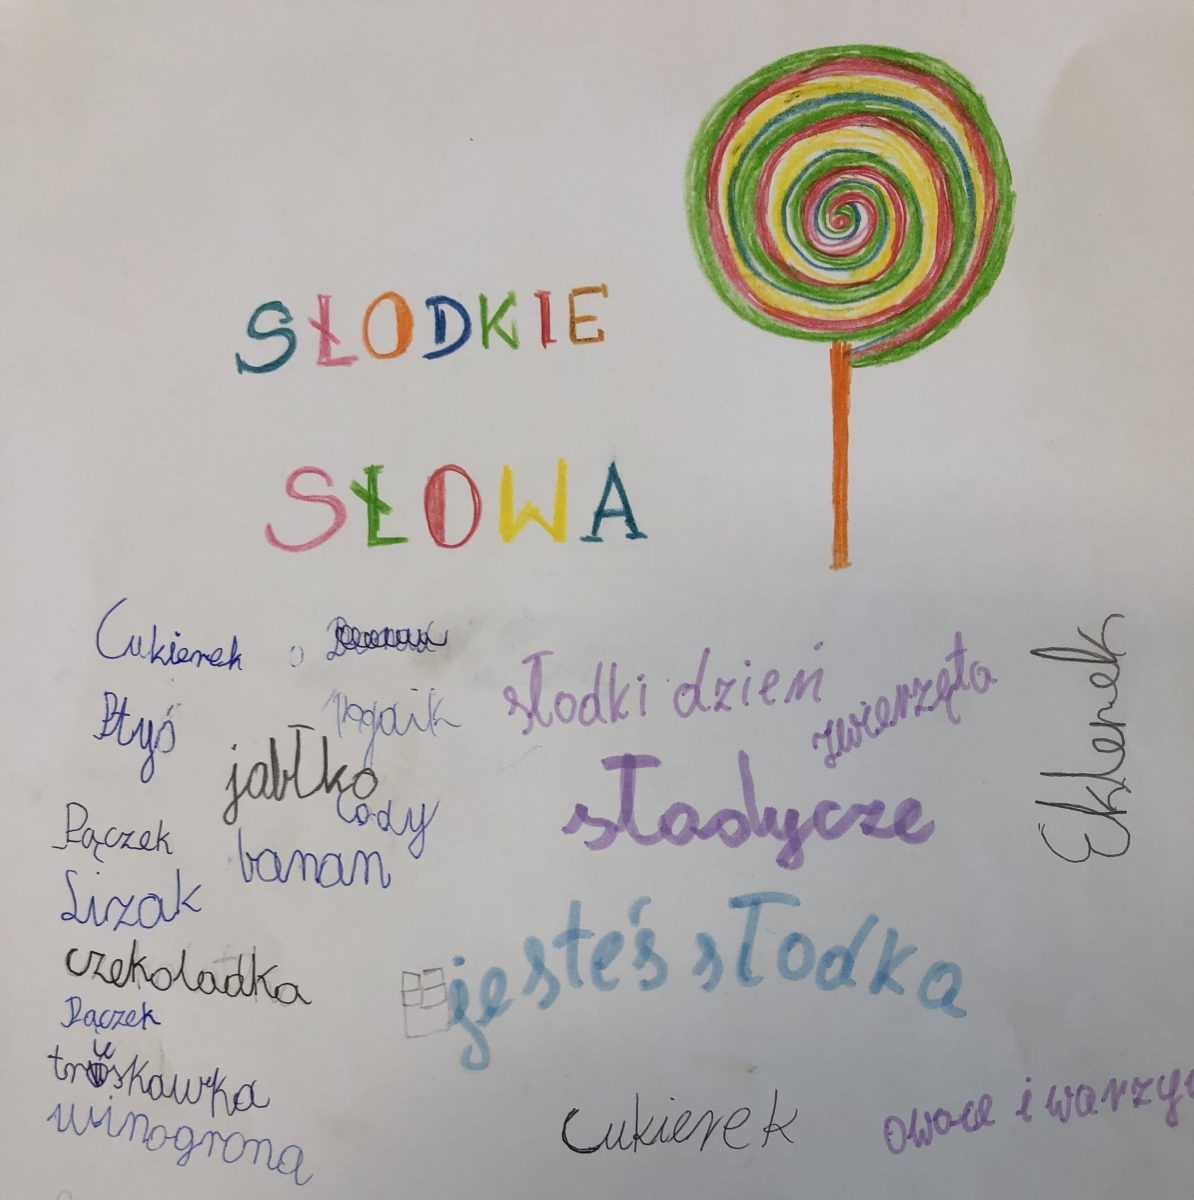 SŁODKIE
SŁOWA
Cukierek
Ptyś
jabłko
lody
Pączek
banan
Lizak
czekoladka
Pączek
truskawka
winogrona
słodki dzień
zwierzęta
słodycze
jesteś słodka
Eklerek
Cukierek
owoce i warzy